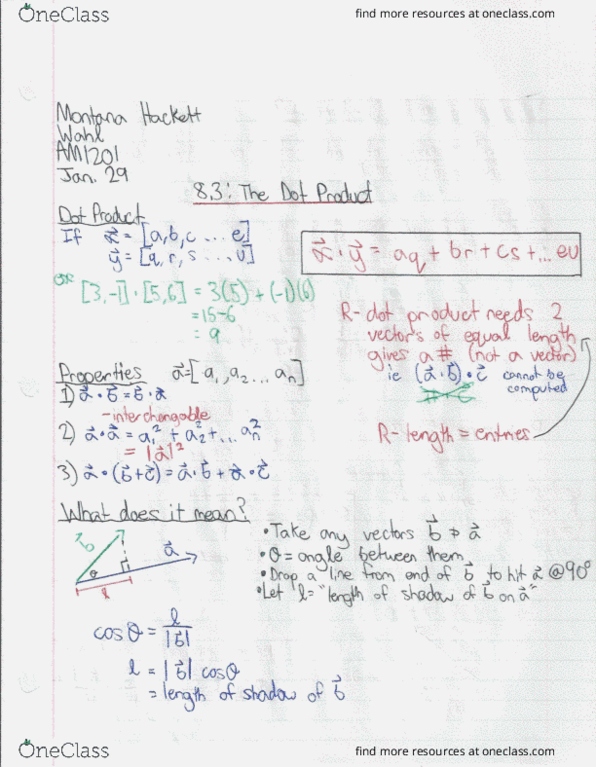 OneClass
find more resources at oneclass.com
Montana Hackett
Wahl
AM1201
Jan. 29
8.3: The Dot Product
Dot Product
If x⃗ = [a, b, c ... e]
y⃗ = [q, r, s ... u]
x⃗ · y⃗ = aq + br + cs + ... eu
[3, -1] · [5, 6] = 3(5) + (-1)(6)
= 15 - 6
= 9
R- dot product needs 2
vector's of equal length
gives a # (not a vector)
ie (a⃗ · b⃗) · c⃗ cannot be
computed
R- length = entries
Properties a⃗ = [a₁, a₂ ... aₙ]
1) a⃗ · b⃗ = b⃗ · a⃗
- interchangable
2) a⃗ · a⃗ = a₁² + a₂² + ... aₙ²
= |a⃗|²
3) a⃗ · (b⃗ + c⃗) = a⃗ · b⃗ + a⃗ · c⃗
What does it mean?
b⃗
a⃗
θ
l
• Take any vectors b⃗ & a⃗
• θ = angle between them
• Drop a line from end of b⃗ to hit a⃗ @ 90°
• Let l = "length of shadow of b⃗ on a⃗"
cosθ = l / |b⃗|
l = |b⃗| cosθ
= length of shadow of b⃗
OneClass
find more resources at oneclass.com